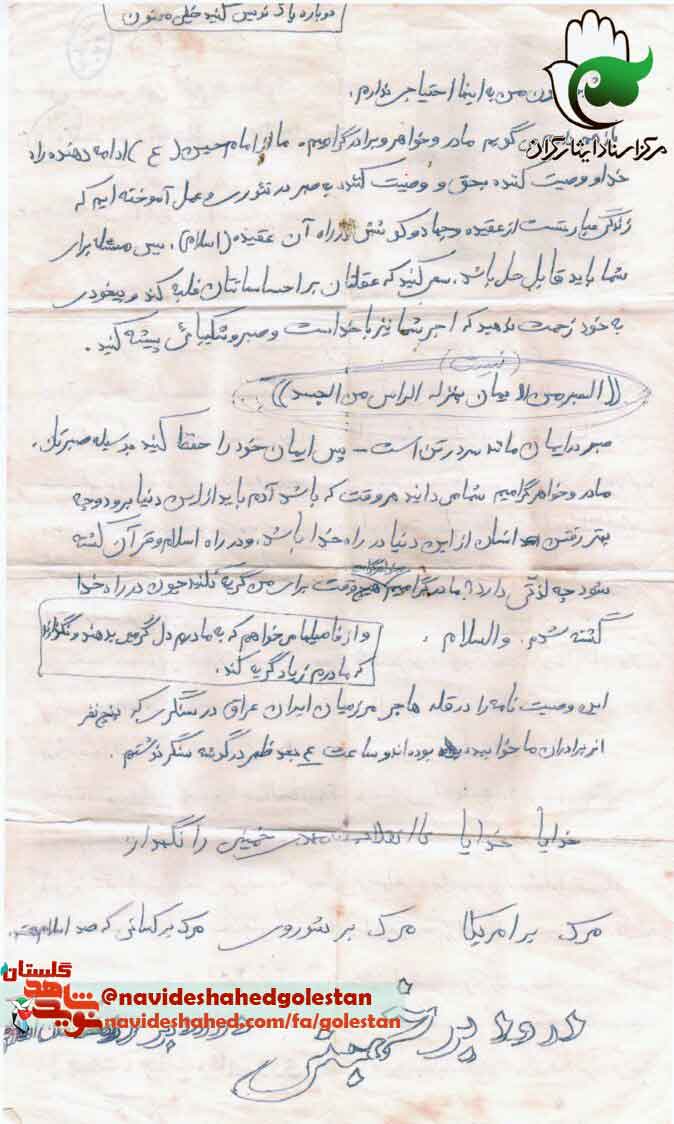 دوباره پاک نویس کنید خیلی ممنون
من به اینها احتیاجی ندارم.
مرکز اسناد ایثارگران
گویم مادر و خواهر و برادر گرامیم. ما از امام حسین (ع) ادامه دهنده راه
خدا و وصیت کننده بحق و وصیت کننده به صبر در تئوری و عمل آموخته ایم که
زندگی عبارتست از عقیده و جهاد و کوشش در راه آن عقیده (اسلام)، پس مسئله برای
شما باید قابل حل باشد. سعی کنید که عقلتان بر احساساتتان غلبه کند و بیخودی
به خود زحمت ندهید که اجر شما نیز با خداست و صبر و شکیبائی پیشه کنید.
(نیست)
((الصبر من الایمان بمنزله الراس من الجسد))
صبر در ایمان مانند سر در تن است - پس ایمان خود را حفظ کنید بوسیله صبرتان.
مادر و خواهر گرامیم شما می دانید هر وقت که باشد آدم باید از این دنیا برود و چه
بهتر رفتن انسان از این دنیا در راه خدا باشد. و در راه اسلام و قرآن کشته
شود چه لذتی دارد؟ مادر گرامیم هیچ وقت برای من گریه نکنید چون در راه خدا
کشته شدم. والسلام.
و از فامیلها می خواهم که به مادرم دل گرمی بدهند و نگذارند
که مادرم زیاد گریه کند.
این وصیت نامه را در قله هاجر مرز میان ایران عراق در سنگری که پنج نفر
از برادران ما خوابیده بوده اند و ساعت ۴ بعد از ظهر در گوشه سنگر نوشتم.
خدایا خدایا تا انقلاب مهدی خمینی را نگهدار
مرگ بر امریکا مرگ بر شوروی مرگ بر کسانی که ضد اسلام هستند
درود بر خمینی
درود بر
گلستان
نوید شاهد
@navideshahedgolestan
navideshahed.com/fa/golestan